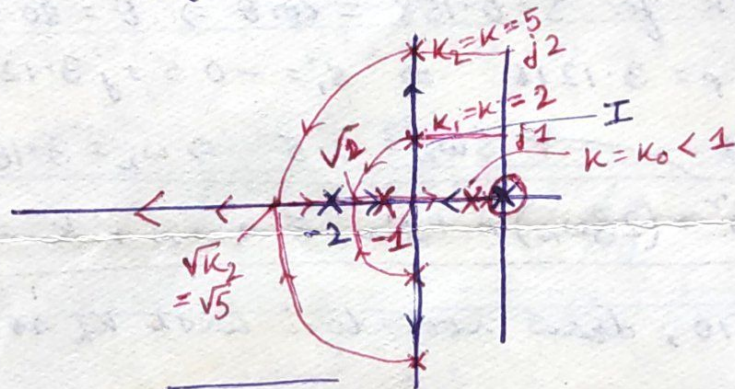 K₂=K=5
j2
K₁=K=2
I
√2
j1
K=K₀<1
-2
-1
√K₂
=√5